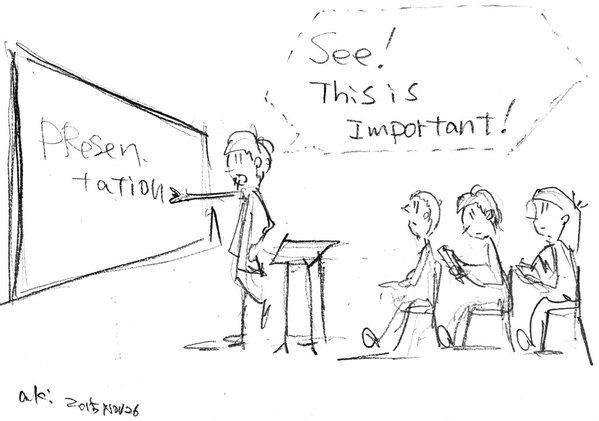 See!
This is
Important!
PResen-
tation
aki 2015 Nov 26